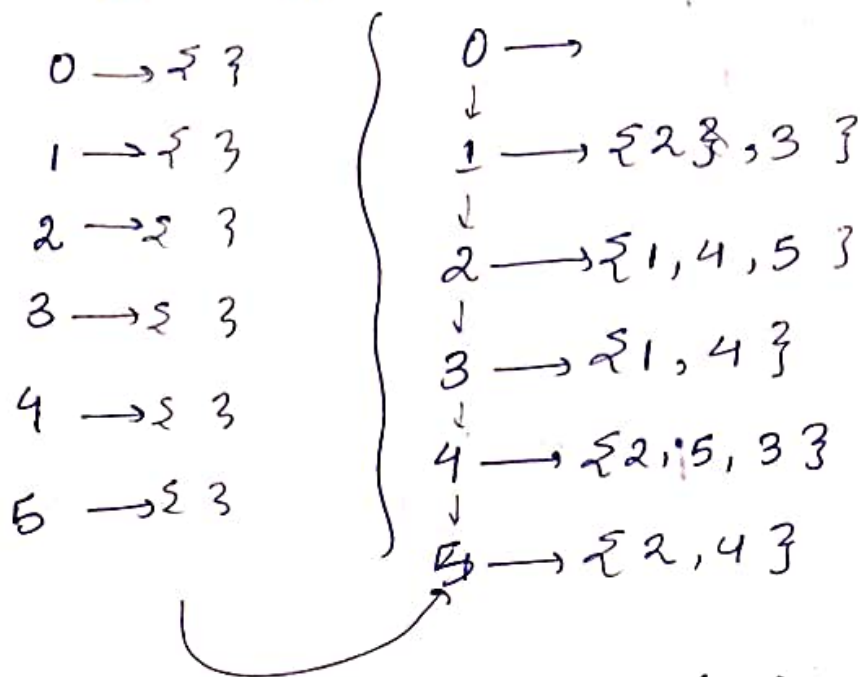 0 → { }
1 → { }
2 → { }
3 → { }
4 → { }
5 → { }
0 →
↓
1 → {2}, 3 }
↓
2 → {1, 4, 5 }
↓
3 → {1, 4 }
↓
4 → {2, 5, 3 }
↓
5 → {2, 4 }